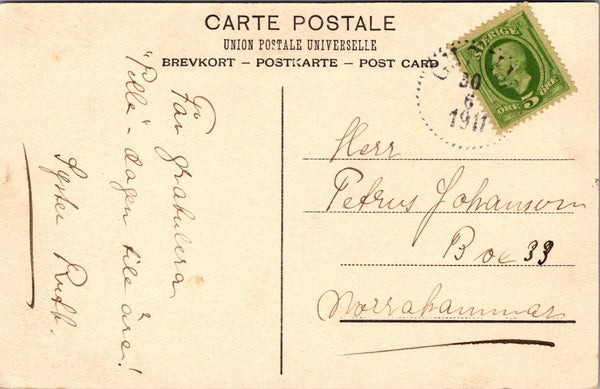 CARTE POSTALE
UNION POSTALE UNIVERSELLE
BREVKORT – POSTKARTE – POST CARD
SVERIGE
5
ÖRE ÖRE
30
6
1911
Får gratulera
"Pelle"-dagen till ära!
Syster Ruth.
Herr
Petrus Johansson
Box 33
Norrahammar